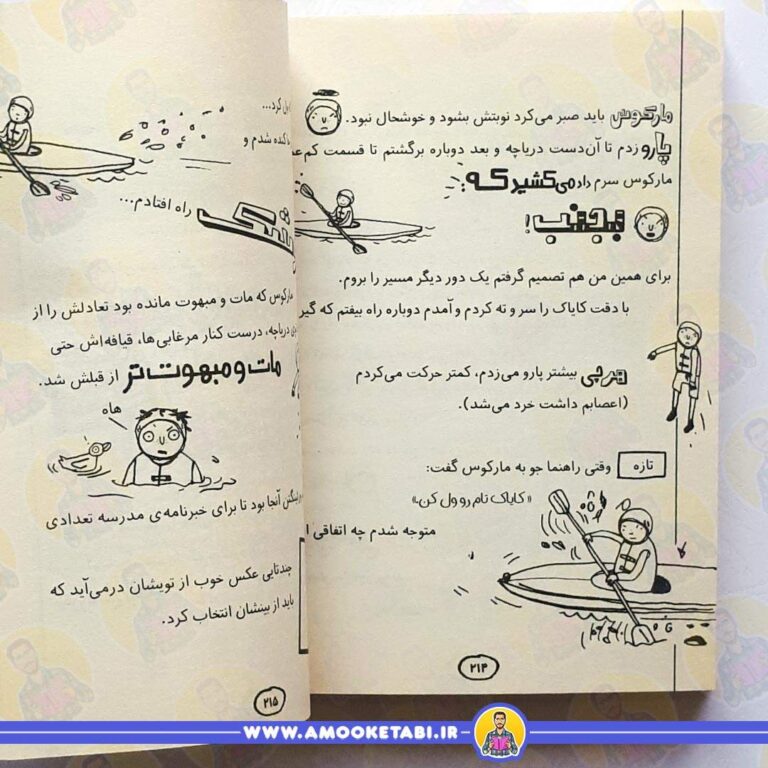 مارکوس باید صبر می‌کرد نوبتش بشود و خوشحال نبود.
پارو زدم تا آن‌دست دریاچه و بعد دوباره برگشتم تا قسمت کم‌
مارکوس سرم داد می‌کشید که:
بجنب!
برای همین من هم تصمیم گرفتم یک دور دیگر مسیر را بروم.
با دقت کایاک را سر و ته کردم و آمدم دوباره راه بیفتم که
هرچی بیشتر پارو می‌زدم، کمتر حرکت می‌کردم
(اعصابم داشت خرد می‌شد).
تازه وقتی راهنما جو به مارکوس گفت:
«کایاک تام رو ول کن.»
متوجه شدم چه اتفاقی
۲۱۴
کرد...
کنده شدم و
راه افتادم...
مارکوس که مات و مبهوت مانده بود تعادلش را از
دریاچه، درست کنار مرغابی‌ها، قیافه‌اش حتی
مات و مبهوت‌تر از قبلش شد.
هاه
آنجا بود تا برای خبرنامه‌ی مدرسه تعدادی
چندتایی عکس خوب از تویشان درمی‌آید که
باید از بینشان انتخاب کرد.
۲۱۵
WWW.AMOOKETABI.IR